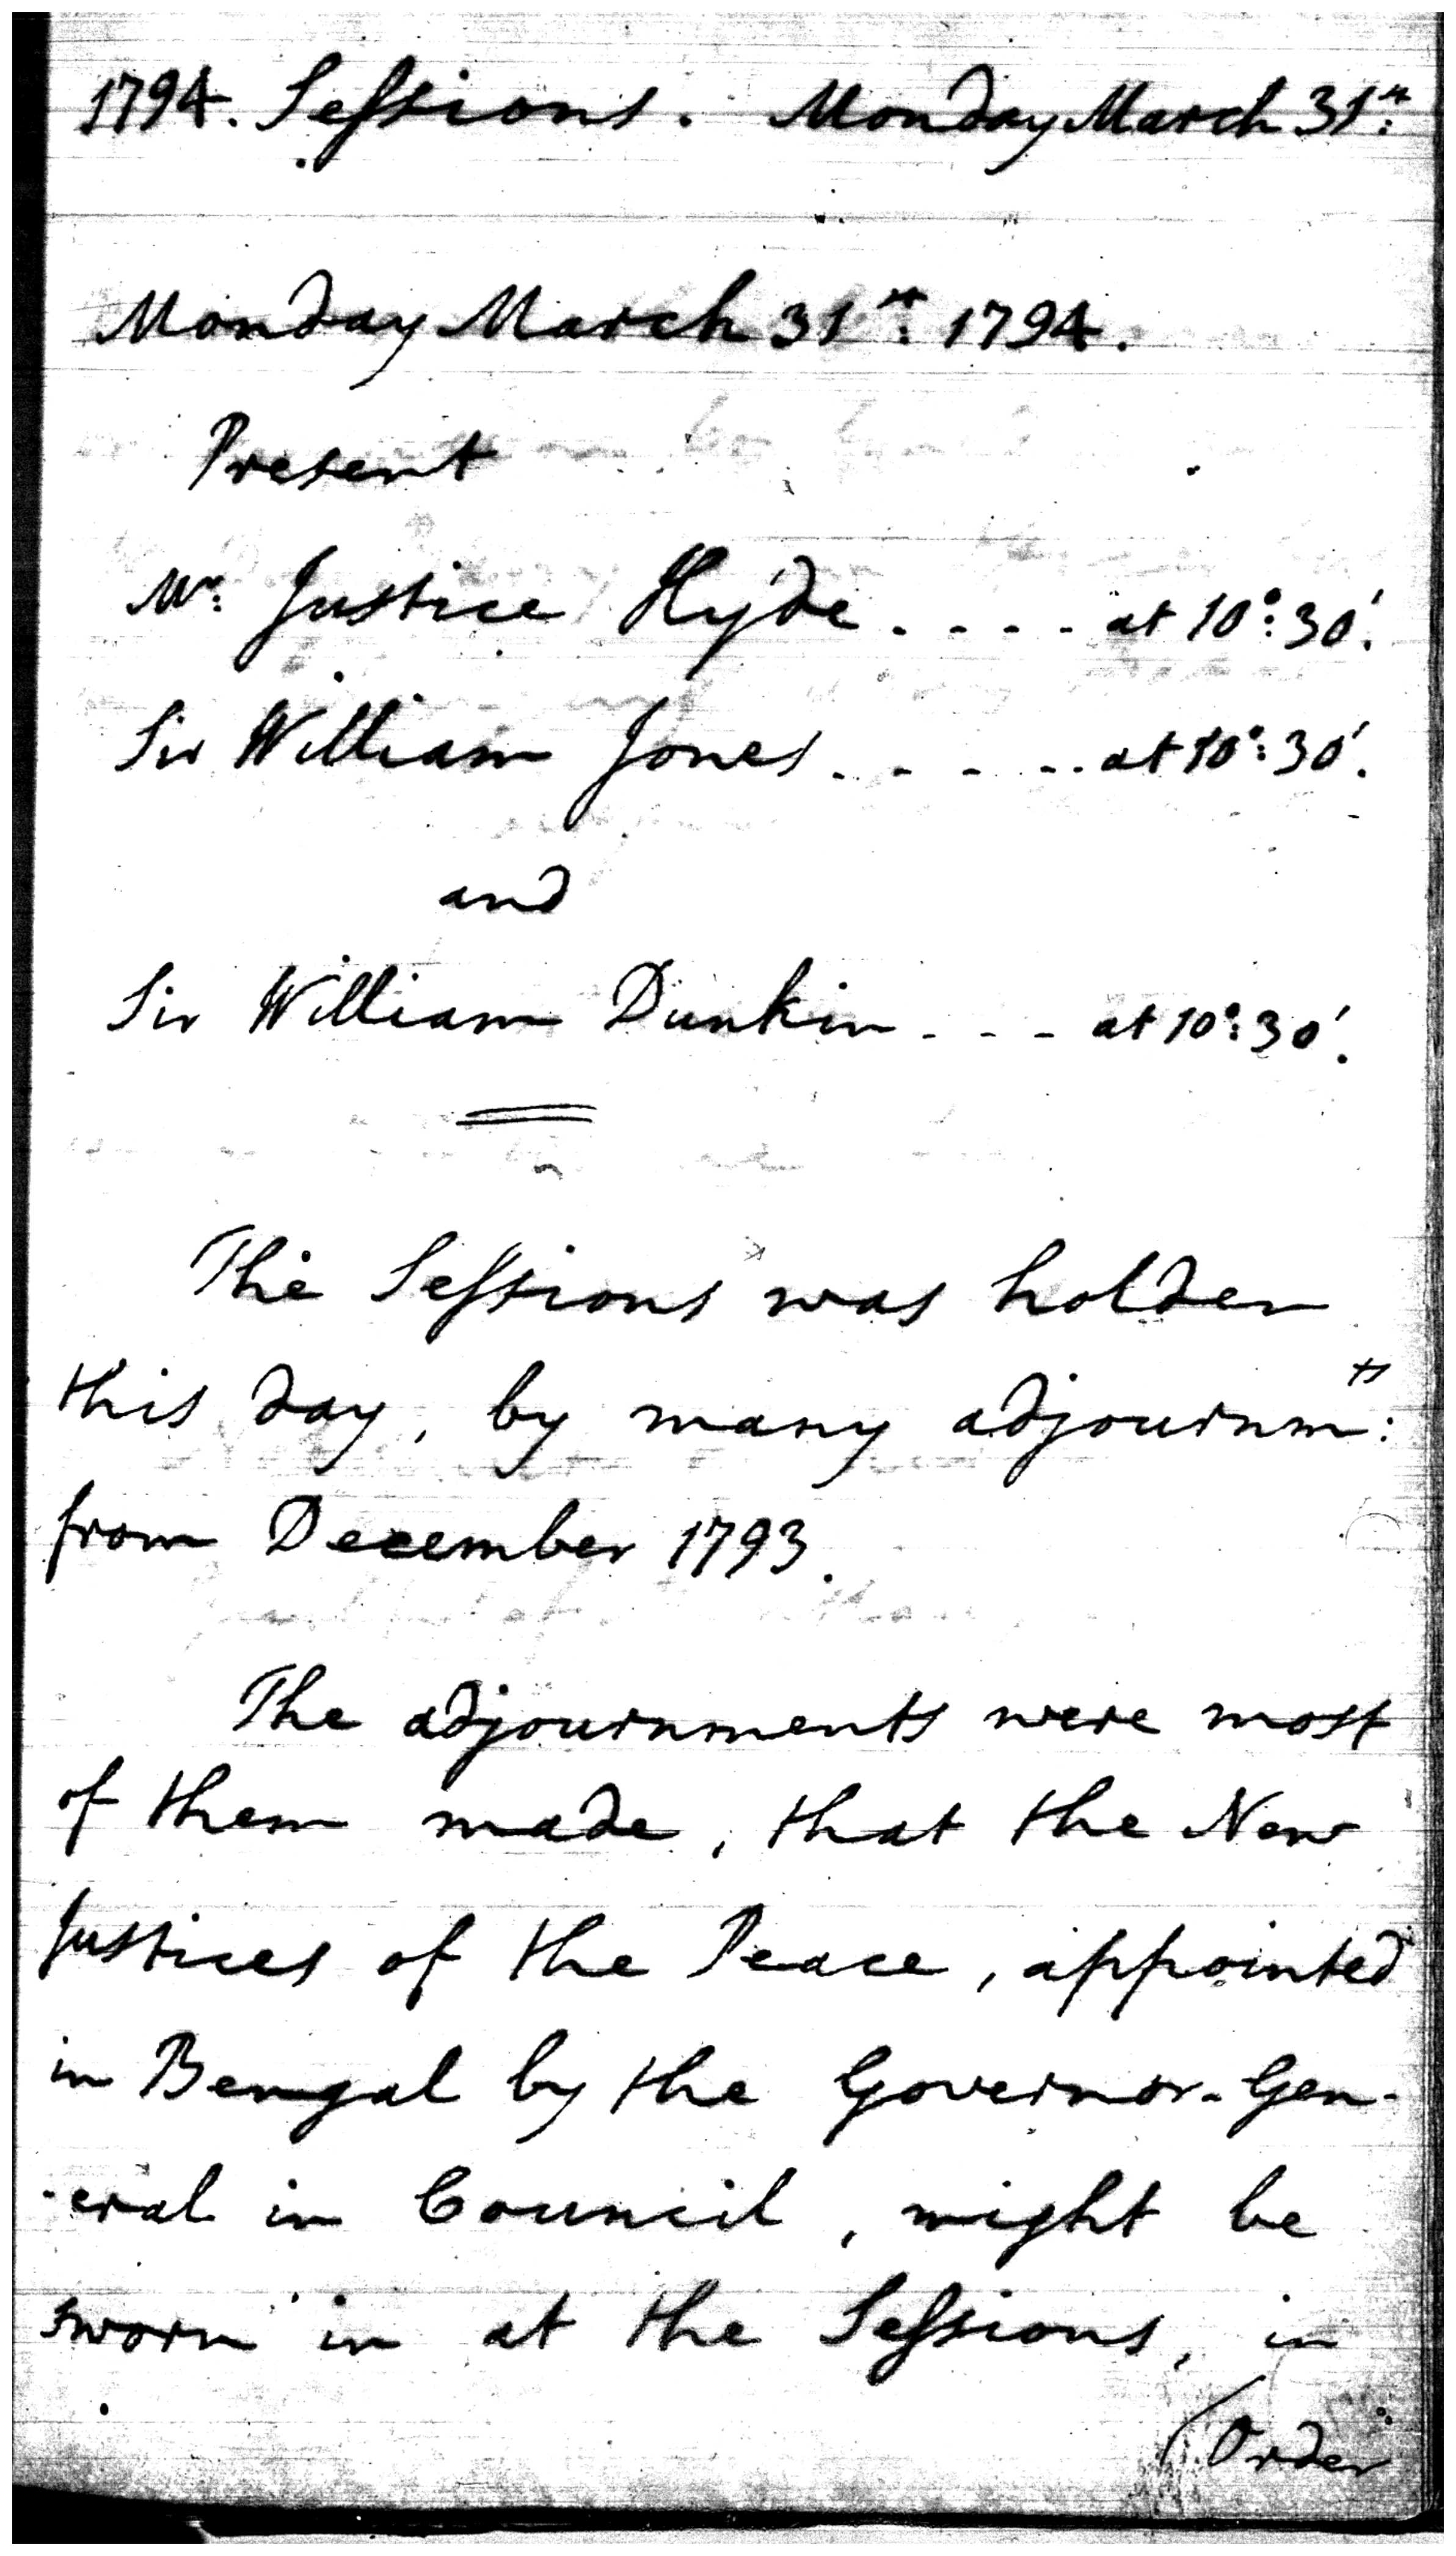 1794. Sessions. Monday March 31st:
Monday March 31st: 1794.
Present
Mr: Justice Hyde. - - - - at 10°: 30'.
Sir William Jones. - - - -. at 10°: 30'.
and
Sir William Dunkin - - - at 10°: 30'.
The Sessions was holden
this day, by many adjournm:ts
from December 1793.
The adjournments were most
of them made, that the New
Justices of the Peace, appointed
in Bengal by the Governor-Gen-
-eral in Council, might be
sworn in at the Sessions, in
Order